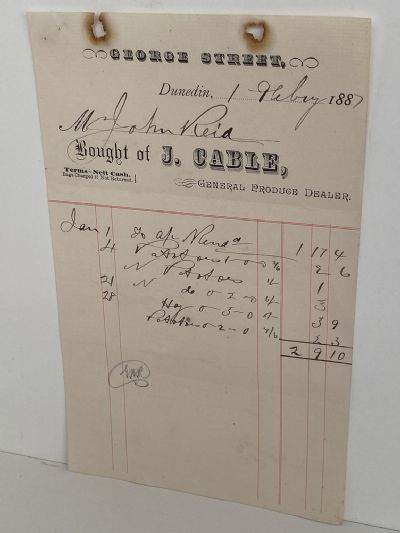 GEORGE STREET,
Dunedin, 1 Feby 1887
Mr John Reid
Bought of J. CABLE,
Terms - Nett Cash.
Bags Charged if Not Returned.
GENERAL PRODUCE DEALER.
Jan 1 To a/c Rend 1 17 4
4 Potatoes 1-0-0 2 6
Potatoes 1
21 do 0-2-0 3
28 Hay 0-3-0 3 9
Potatoes 0-2-0 2 3
2 9 10